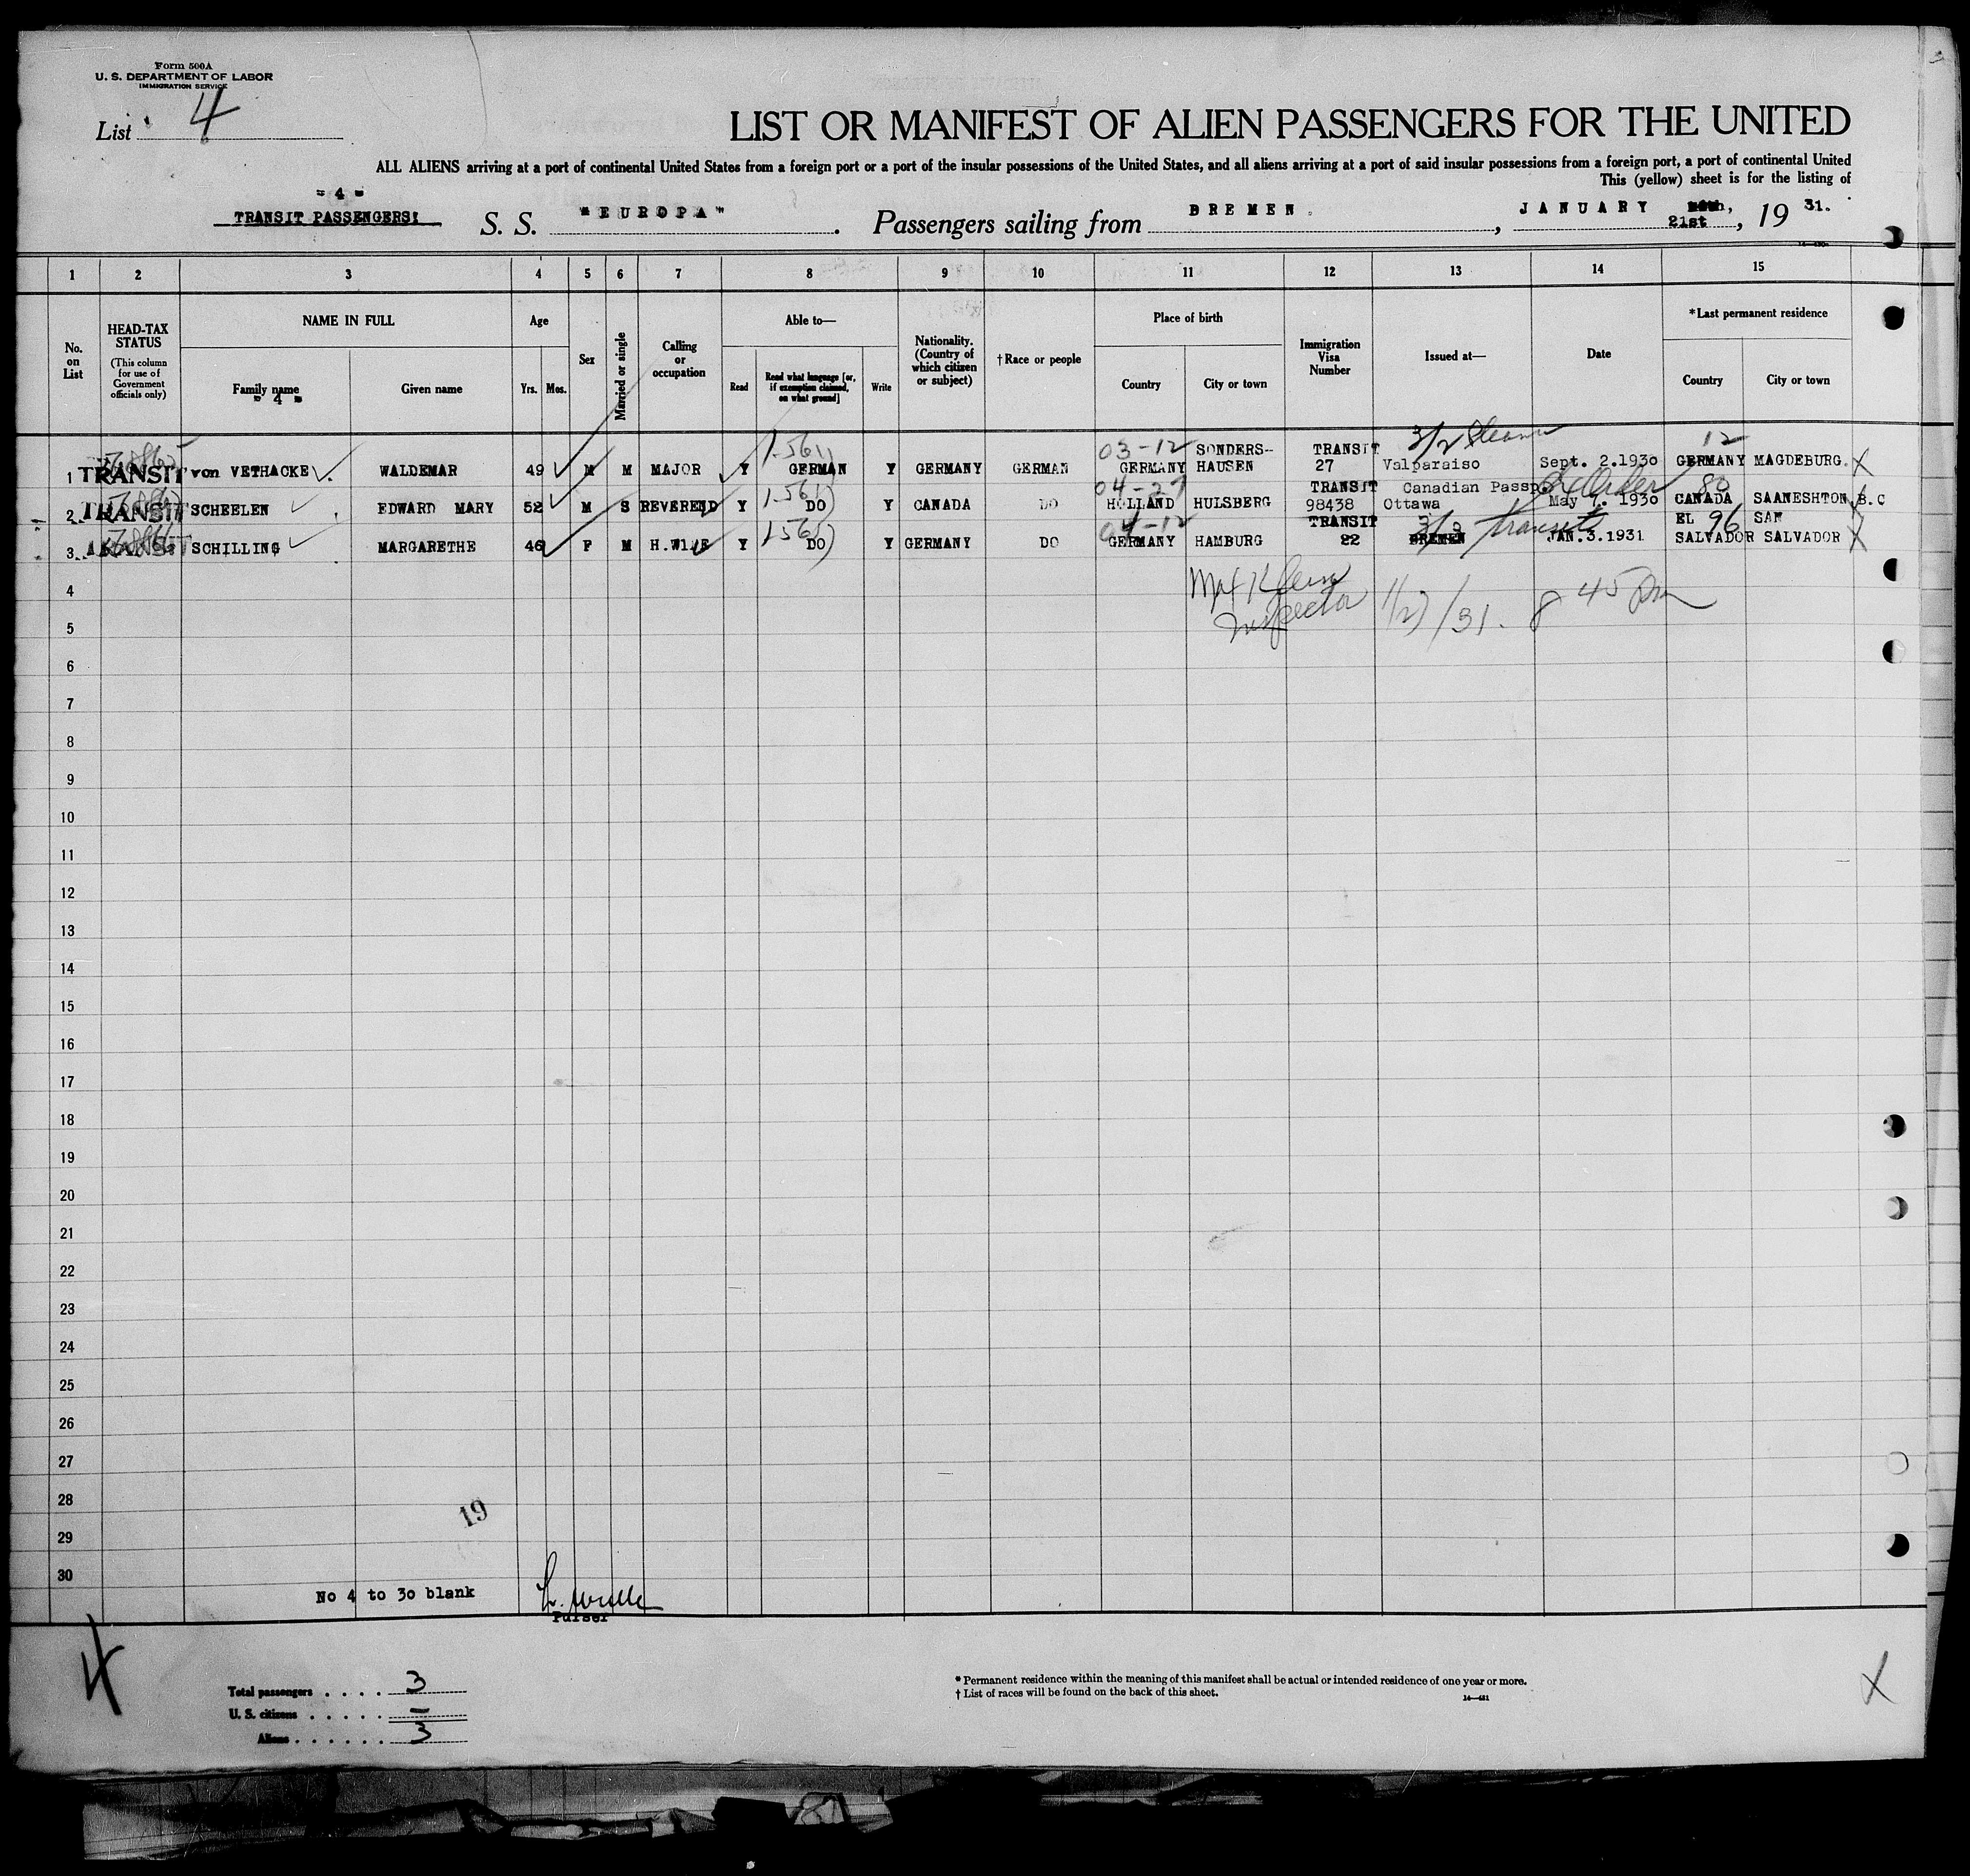 Form 500A
U. S. DEPARTMENT OF LABOR
IMMIGRATION SERVICE
List 4
LIST OR MANIFEST OF ALIEN PASSENGERS FOR THE UNITED
ALL ALIENS arriving at a port of continental United States from a foreign port or a port of the insular possessions of the United States, and all aliens arriving at a port of said insular possessions from a foreign port, a port of continental United
This (yellow) sheet is for the listing of
- 4 -
TRANSIT PASSENGERS: S. S. "EUROPA". Passengers sailing from BREMEN, JANUARY 21st, 19 31.
1 2 3 4 5 6 7 8 9 10 11 12 13 14 15
No. on List
HEAD-TAX STATUS (This column for use of Government officials only)
NAME IN FULL
Family name
- 4 -
Given name
Age
Yrs. Mos.
Sex
Married or single
Calling or occupation
Able to—
Read
Read what language [or, if exemption claimed, on what ground]
Write
Nationality. (Country of which citizen or subject)
†Race or people
Place of birth
Country
City or town
Immigration Visa Number
Issued at—
Date
*Last permanent residence
Country
City or town
1 TRANSIT von VETHACKE WALDEMAR 49 M M MAJOR Y GERMAN Y GERMANY GERMAN 03-12 GERMANY SONDERS-HAUSEN TRANSIT 27 3/2 Valparaiso Sept. 2.1930 12 GERMANY MAGDEBURG. X
2 TRANSIT SCHEELEN EDWARD MARY 52 M S REVEREND Y DO Y CANADA DO 04-27 HOLLAND HULSBERG TRANSIT 98438 Canadian Passp Ottawa May 1. 1930 80 CANADA SAANESHTON B.C
3 TRANSIT SCHILLING MARGARETHE 46 F M H.WIFE Y DO Y GERMANY DO 04-12 GERMANY HAMBURG TRANSIT 22 BREMEN transit JAN.3.1931 96 EL SALVADOR SAN SALVADOR X
4
Inspector 8 45 Pm
5
6
7
8
9
10
11
12
13
14
15
16
17
18
19
20
21
22
23
24
25
26
27
28
19
29
30
No 4 to 30 blank
Purser
4
Total passengers . . . . 3
U. S. citizens . . . . . —
Aliens . . . . . . 3
* Permanent residence within the meaning of this manifest shall be actual or intended residence of one year or more.
† List of races will be found on the back of this sheet.
X